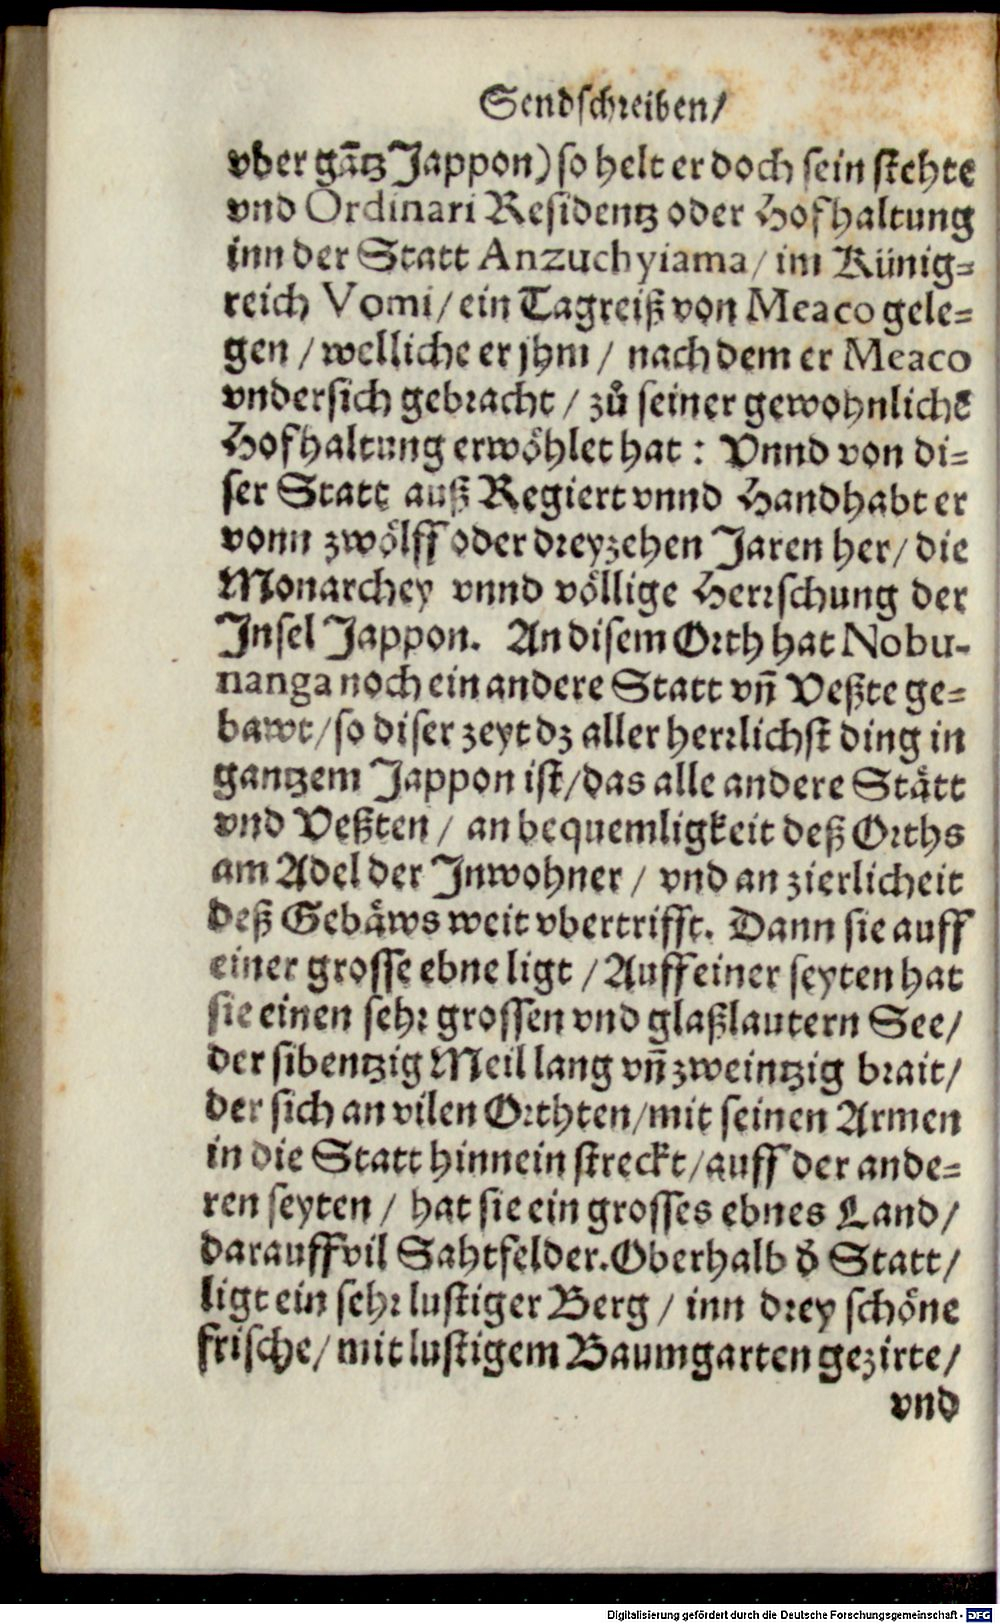 Sendschreiben/
vber gātz Jappon) so helt er doch sein stehte
vnd Ordinari Residentz oder Hofhaltung
inn der Statt Anzuchyiama/ im Künig=
reich Vomi/ ein Tagreiß von Meaco gele=
gen / welliche er jhm / nach dem er Meaco
vndersich gebracht / zů seiner gewohnlichē
Hofhaltung erwöhlet hat : Vnnd von di=
ser Statt auß Regiert vnnd Handhabt er
vonn zwölff oder dreyzehen Jaren her/ die
Monarchey vnnd völlige Herrschung der
Insel Jappon. An disem Orth hat Nobu-
nanga noch ein andere Statt vñ Veßte ge=
bawt/ so diser zeyt dz aller herrlichst ding in
gantzem Jappon ist/ das alle andere Stätt
vnd Veßten / an bequemligkeit deß Orths
am Adel der Inwohner / vnd an zierlicheit
deß Gebäws weit vbertrifft. Dann sie auff
einer grosse ebne ligt / Auff einer seyten hat
sie einen sehr grossen vnd glaßlautern See/
der sibentzig Meil lang vñ zweintzig brait/
der sich an vilen Orthten/ mit seinen Armen
in die Statt hinnein streckt/ auff der ande=
ren seyten / hat sie ein grosses ebnes Land/
darauff vil Sahtfelder. Oberhalb d̓ Statt/
ligt ein sehr lustiger Berg / inn drey schöne
frische/ mit lustigem Baumgarten gezirte/
vnd
Digitalisierung gefördert durch die Deutsche Forschungsgemeinschaft - DFG